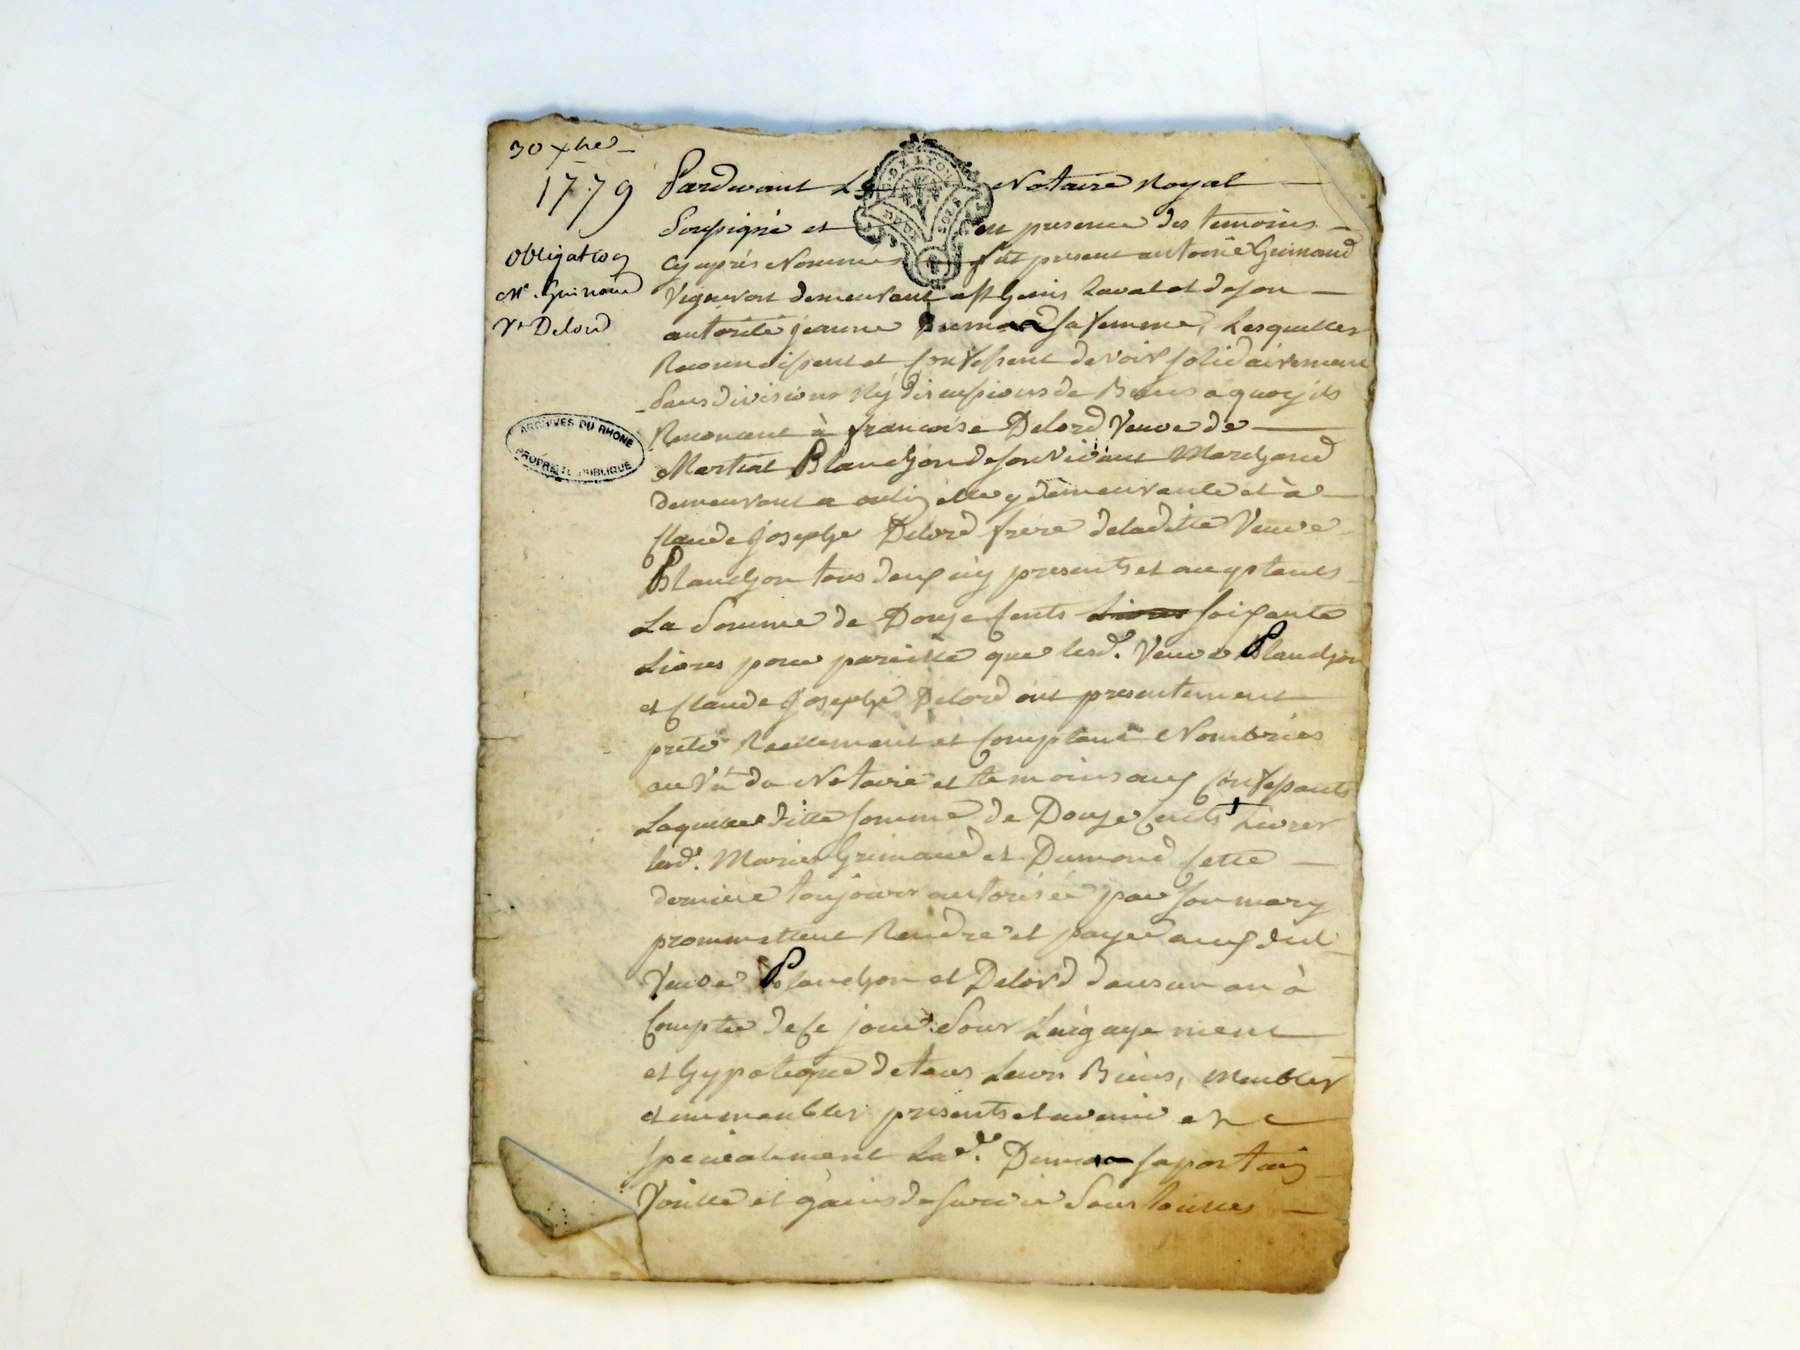 30 xbre
1779
Obligation
Mr. Grimaud
Vᵉ Delord
ARCHIVES DU RHONE
PROPRIETE PUBLIQUE
Pardevant Le Notaire Royal
Soussigné et en presence des temoins
cy après Nommés fut present antoine Grimaud
Vigneron demeurant a St Genis Laval et de son
autorité jeanne Dumond sa femme, Lesquelles
Reconnoissent et Confessent devoir solidairement
sans division Ny discussions de Biens a quoy ils
Renoncent à francoise Delord Veuve de
Martial Blanchon de son vivant Marchand
demeurant a oulin elle y demeurante et à
Claude Joseph Delord frere de laditte Veuve
Blanchon tous deux icy presents et acceptants
La Somme de Douze Cents Livres soixante
Livres pour pareille que lesd. Veuve Blanchon
et Claude Joseph Delord ont presentement
prêté Reellement et Comptant Nombrées
au Vu du Notaire et temoins aux Confessants
Laquelle ditte somme de Douze Cents Livres
lesd. Mariés Grimaud et Dumond cette
derniere toujours autorisée par son mary
promettent Rendre et payer auxdits
Veuve Blanchon et Delord dans un an à
Compter de Ce jour Sous L'engagement
et hypoteque de tous Leurs Biens, Meubles
et immeubles presents et avenir et
specialement La d. Dumond sa portion
Virille et gains de survie Sous toutes